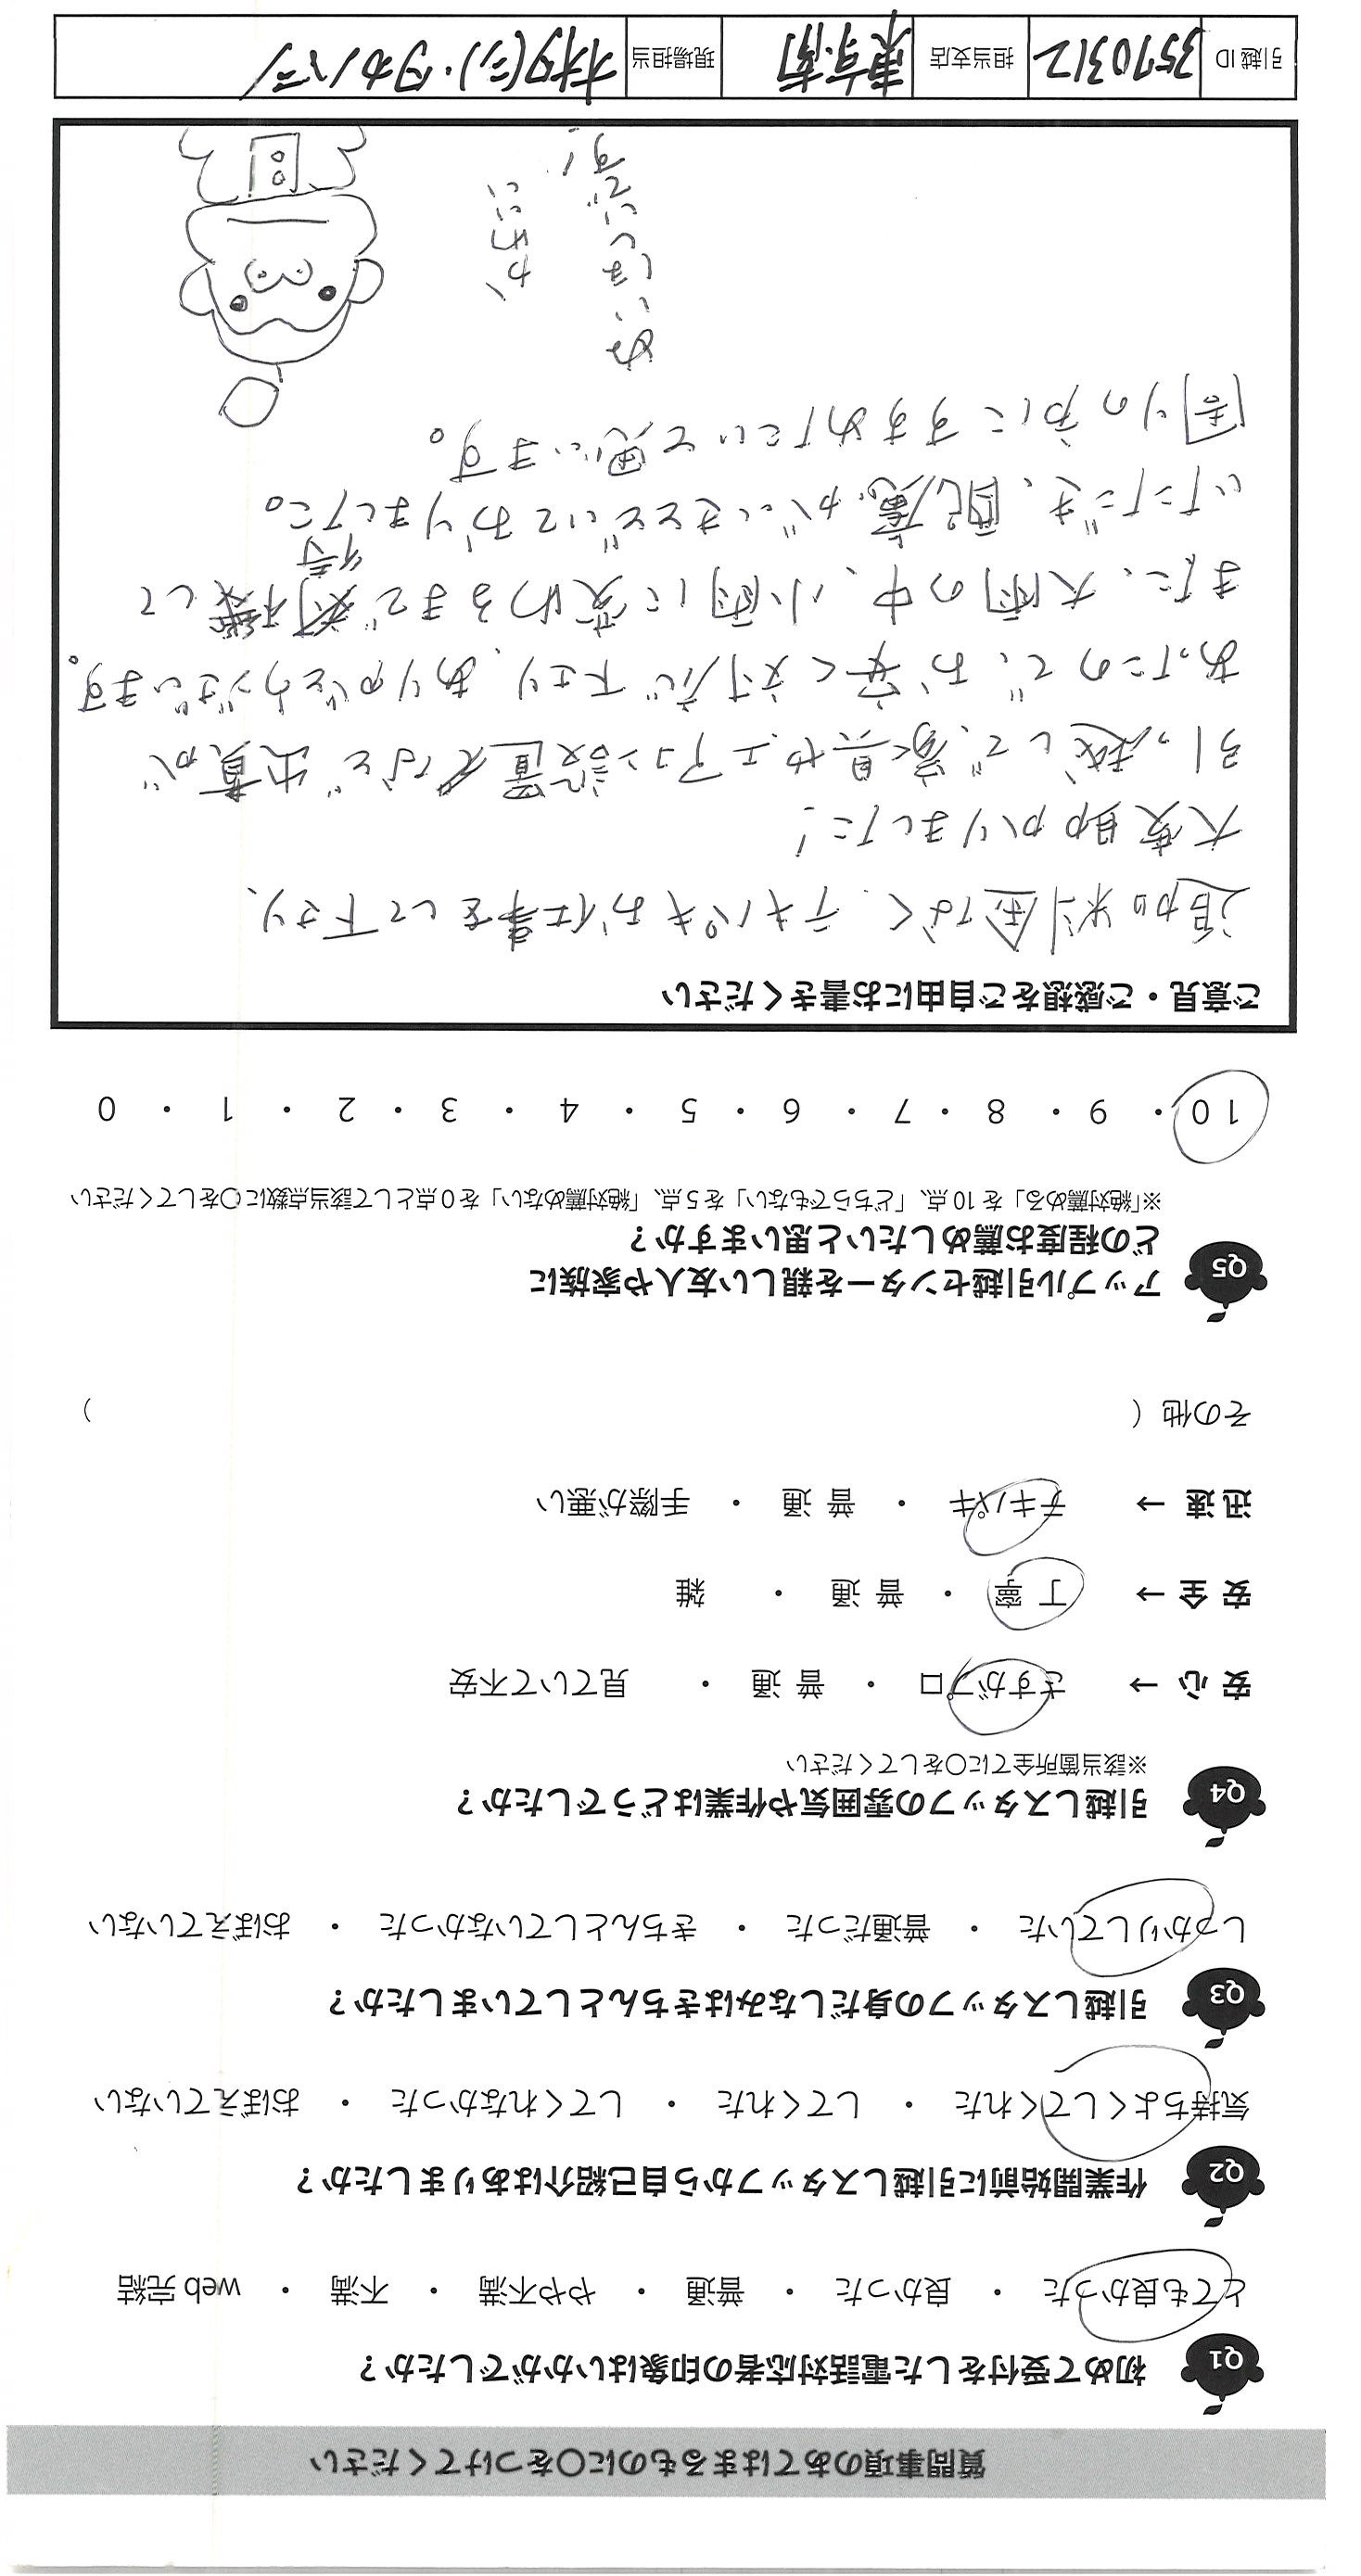 質問事項のあてはまるものに〇をつけてください
Q1 初めて受付をした電話対応者の印象はいかがでしたか？
とても良かった ・ 良かった ・ 普通 ・ やや不満 ・ 不満 ・ web完結
Q2 作業開始前に引越しスタッフから自己紹介はありましたか？
気持ちよくしてくれた ・ してくれた ・ してくれなかった ・ おぼえていない
Q3 引越しスタッフの身だしなみはきちんとしていましたか？
しっかりしていた ・ 普通だった ・ きちんとしていなかった ・ おぼえていない
Q4 引越しスタッフの雰囲気や作業はどうでしたか？
※該当箇所全てに〇をしてください
安心 → さすがプロ ・ 普通 ・ 見ていて不安
安全 → 丁寧 ・ 普通 ・ 雑
迅速 → テキパキ ・ 普通 ・ 手際が悪い
その他（ ）
Q5 アップル引越センターを親しい友人や家族に
どの程度お薦めしたいと思いますか？
※「絶対薦める」を10点、「どちらでもない」を5点、「絶対薦めない」を0点として該当点数に〇をしてください
10 ・ 9 ・ 8 ・ 7 ・ 6 ・ 5 ・ 4 ・ 3 ・ 2 ・ 1 ・ 0
ご意見・ご感想をご自由にお書きください
追加料金なく、テキパキお仕事をして下さり、
大変助かりました！
引っ越しで、家具や、エアコン設置など出費が
あったので、お安く対応下さり、ありがとうございます。
また、大雨の中、小雨に変わるまで待機して
いただき、配慮がいきとどいておりました。
周りの方にすすめたいて思います。
ぬいほしいです！
かわいい
引越ID 3570312 担当支店 東京南 現場担当